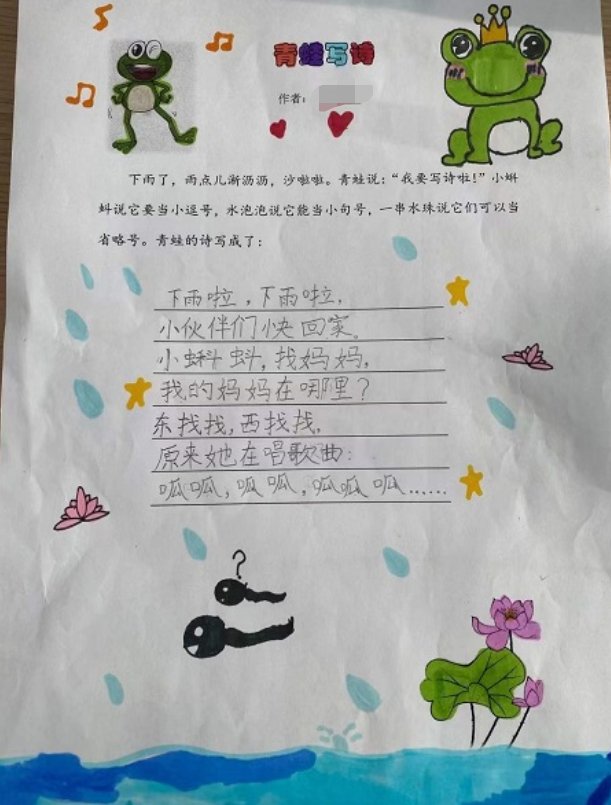 青蛙写诗
作者：
下雨了，雨点儿淅沥沥，沙啦啦。青蛙说：“我要写诗啦！”小蝌
蚪说它要当小逗号，水泡泡说它能当小句号，一串水珠说它们可以当
省略号。青蛙的诗写成了：
下雨啦，下雨啦，
小伙伴们快回家。
小蝌蚪，找妈妈，
我的妈妈在哪里？
东找找，西找找，
原来她在唱歌曲：
呱呱，呱呱，呱呱呱……
?